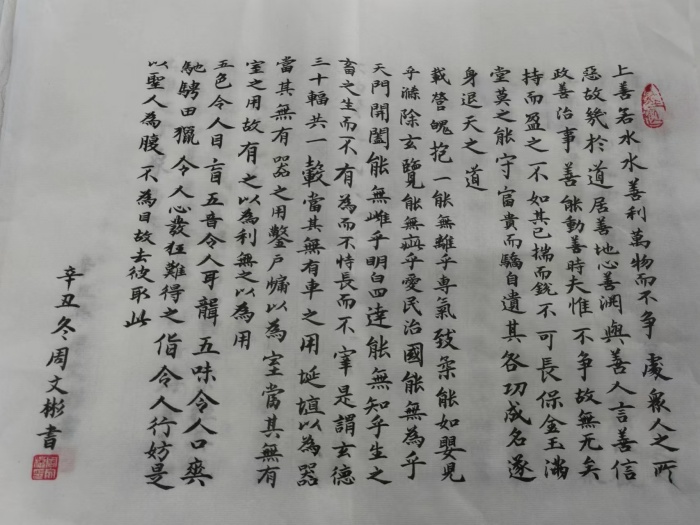 上善若水水善利萬物而不争處衆人之所
惡故幾於道居善地心善渊與善人言善信
政善治事善能動善時夫惟不争故無尤矣
持而盈之不如其已揣而鋭不可長保金玉满
堂莫之能守富貴而驕自遺其咎功成名遂
身退天之道
載營魄抱一能無離乎専氣致柔能如嬰児
乎滌除玄覽能無疵乎愛民治國能無為乎
天門開闔能無雌乎明白四達能無知乎生之
畜之生而不有為而不恃長而不宰是謂玄德
三十輻共一轂當其無有車之用埏埴以為器
當其無有器之用鑿戶牖以為室當其無有
室之用故有之以為利無之以為用
五色令人目盲五音令人耳聾五味令人口爽
馳騁田獵令人心發狂難得之貨令人行妨是
以聖人為腹不為目故去彼取此
辛丑冬周文彬書